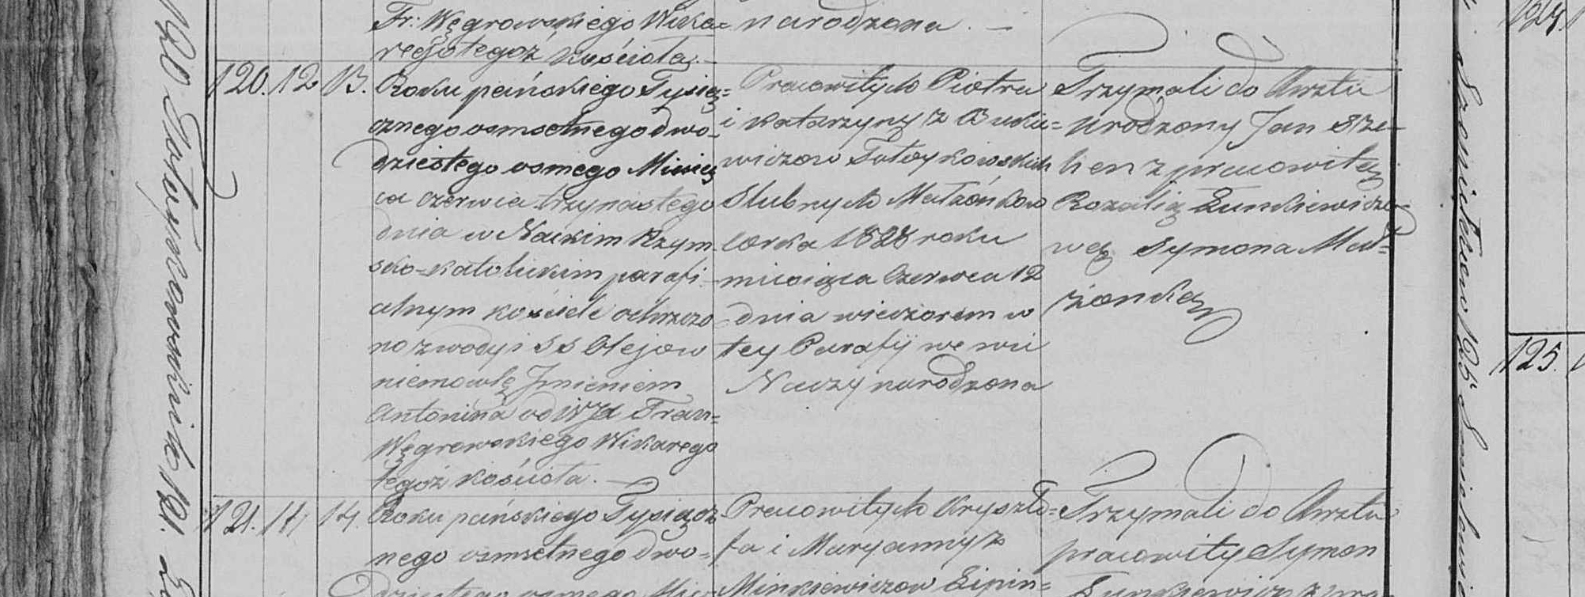 Fr: Węgrowskiego Wika=
rego tegoż kościoła.—
narodzona. —
120. 12 13.
Roku pańskiego Tysią=
cznego osmsetnego dwo-
dziestego osmego Miesią
ca czerwca trzynastego
dnia w Nackim Rzym
sko-katolickim parafi
alnym kościele ochrzczo
no z wody i SS Olejow
niemowlę Jmieniem
Antonina od Fran=
Węgrowskiego Wikarego
tegoż kościoła. —
Pracowitych Piotra
i Katarzyny z Buka=
wiczow Tatoykowskich
Slubnych Małżonkow
corka 1828 roku
miesiąca Czerwca 12
dnia wieczorem w
tey Parafij we wsi
Naczy narodzona
Trzymali do Krztu
urodzony Jan
z pracowitą
Rozalią Lunkiewiczo-
wą Symona Mał=
żonką
121. 14 14.
Roku pańskiego Tysiącz
nego osmsetnego dwo=
dziestego osmego Mie
Pracowitych Kryszto=
fa i Maryanny z
Minkiewiczow Lipin=
Trzymali do Krztu
pracowity Symon
Lunkiewicz z pra=
120 Tatoykowskich 121.
125
124.
125.